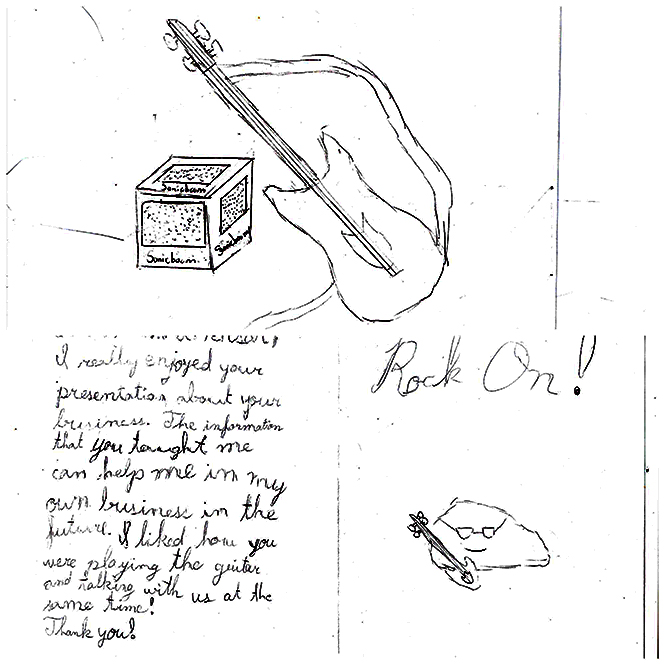 Sonicboom
Sonicboom
Sonicboom
I really enjoyed your
presentation about your
business. The information
that you taught me
can help me in my
own business in the
future. I liked how you
were playing the guitar
and talking with us at the
same time!
Thank you!
Rock On!